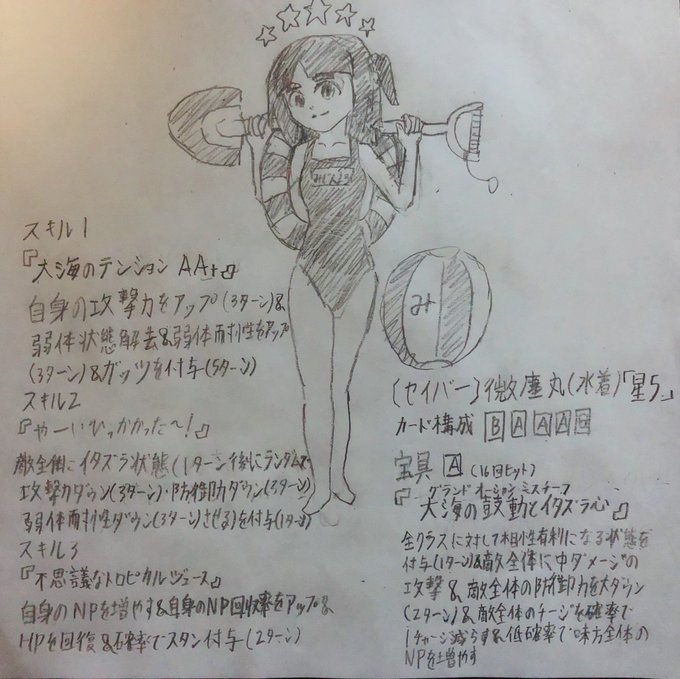 みじんまる
み
スキル1
『大海のテンション AA+』
自身の攻撃力をアップ(3ターン)&
弱体状態解除&弱体耐性をアップ
(3ターン)&ガッツを付与(5ターン)
スキル2
『やーいひっかかった〜!』
敵全体にイタズラ状態(1ターン後にランダムで
攻撃力ダウン(3ターン)・防御力ダウン(3ターン)
弱体耐性ダウン(3ターン)させる)を付与(1ターン)
スキル3
『不思議なトロピカルジュース』
自身のNPを増やす&自身のNP回収率をアップ&
HPを回復&確率でスタン付与(2ターン)
(セイバー)微塵丸(水着)「星5」
カード構成 B A A A Q
宝具 A (16回ヒット)
グランドオーシャン・ミスチーフ
『大海の鼓動とイタズラ心』
全クラスに対して相性有利になる状態を
付与(1ターン)&敵全体に中ダメージの
攻撃&敵全体の防御力を大ダウン
(2ターン)&敵全体のチャージを確率で
1チャージ減らす&低確率で味方全体の
NPを増やす